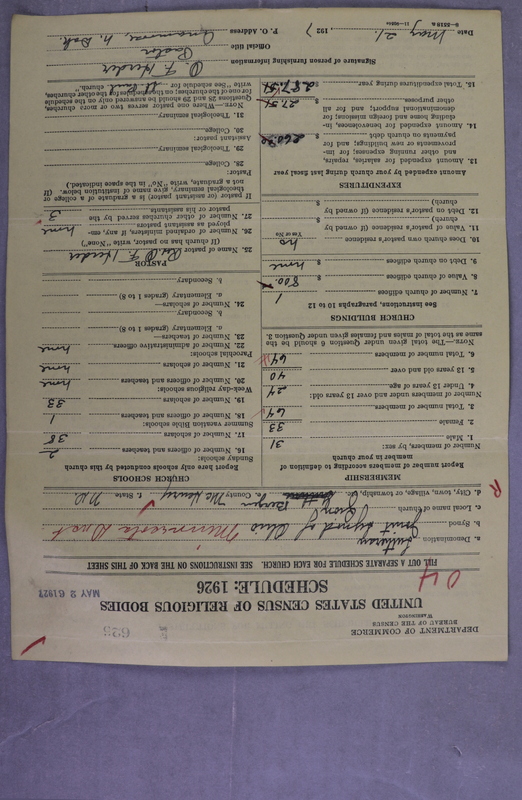 DEPARTMENT OF COMMERCE
BUREAU OF THE CENSUS
WASHINGTON
623
UNITED STATES CENSUS OF RELIGIOUS BODIES
SCHEDULE: 1926
MAY 26 1927
04
FILL OUT A SEPARATE SCHEDULE FOR EACH CHURCH. SEE INSTRUCTIONS ON BACK OF THIS SHEET
a. Denomination Lutheran
b. Synod Joint Synod of Ohio Minnesota Dist
c. Local name of church Zion
d. City, town, village, or township, etc. County McHenry State N.D.
MEMBERSHIP
Report number of members according to definition of member in your church
Number of members, by sex:
1. Male 31
2. Female 33
3. Total number of members 64
Number of members under and over 13 years old:
4. Under 13 years of age 24
5. 13 years old and over 40
6. Total number of members 64
NOTE.—The total given under Question 6 should be the same as the total of males and females given under Question 3.
CHURCH BUILDINGS
See Instructions, paragraphs 10 to 12
7. Number of church edifices 1
8. Value of church edifices $ 800.
9. Debt on church edifices $ none
10. Does church own pastor's residence no
Yes or No
11. Value of pastor's residence (if owned by church) $
12. Debt on pastor's residence (if owned by church) $
EXPENDITURES
Amount expended by your church during last fiscal year
13. Amount expended for salaries, repairs, and other running expenses; for improvements or new buildings; and for payments on church debt $ 260.00
14. Amount expended for benevolences, including home and foreign missions; for denominational support; and for all other purposes $ 27.54
15. Total expenditures during year $ 287.54
CHURCH SCHOOLS
Report here only schools conducted by this church
Sunday schools:
16. Number of officers and teachers 2
17. Number of scholars 38
Summer vacation Bible schools:
18. Number of officers and teachers 1
19. Number of scholars 33
Week-day religious schools:
20. Number of officers and teachers none
21. Number of scholars none
Parochial schools:
22. Number of administrative officers none
23. Number of teachers—
a. Elementary (grades 1 to 8)
b. Secondary
24. Number of scholars—
a. Elementary (grades 1 to 8)
b. Secondary
PASTOR
25. Name of pastor Rev. O. F. Heider
(If church has no pastor, write "None")
26. Number of ordained ministers, if any, employed as pastor's assistants none
27. Number of other churches served by the pastor or his assistants 3
If pastor (or assistant pastor) is a graduate of a college or theological seminary, give name of institution below. (If not a graduate, write "No" in the space indicated.)
Pastor:
28. College
29. Theological seminary
Assistant pastor:
30. College
31. Theological seminary
NOTE.—Where one pastor serves two or more churches, Questions 28 and 29 should be answered only on the schedule for one of the churches; on the schedules for the other churches, write "See schedule for St. Paul church."
Signature of person furnishing information O. F. Heider
Official title Pastor
P. O. Address Anamoose, N. Dak
Date May 21, 1927